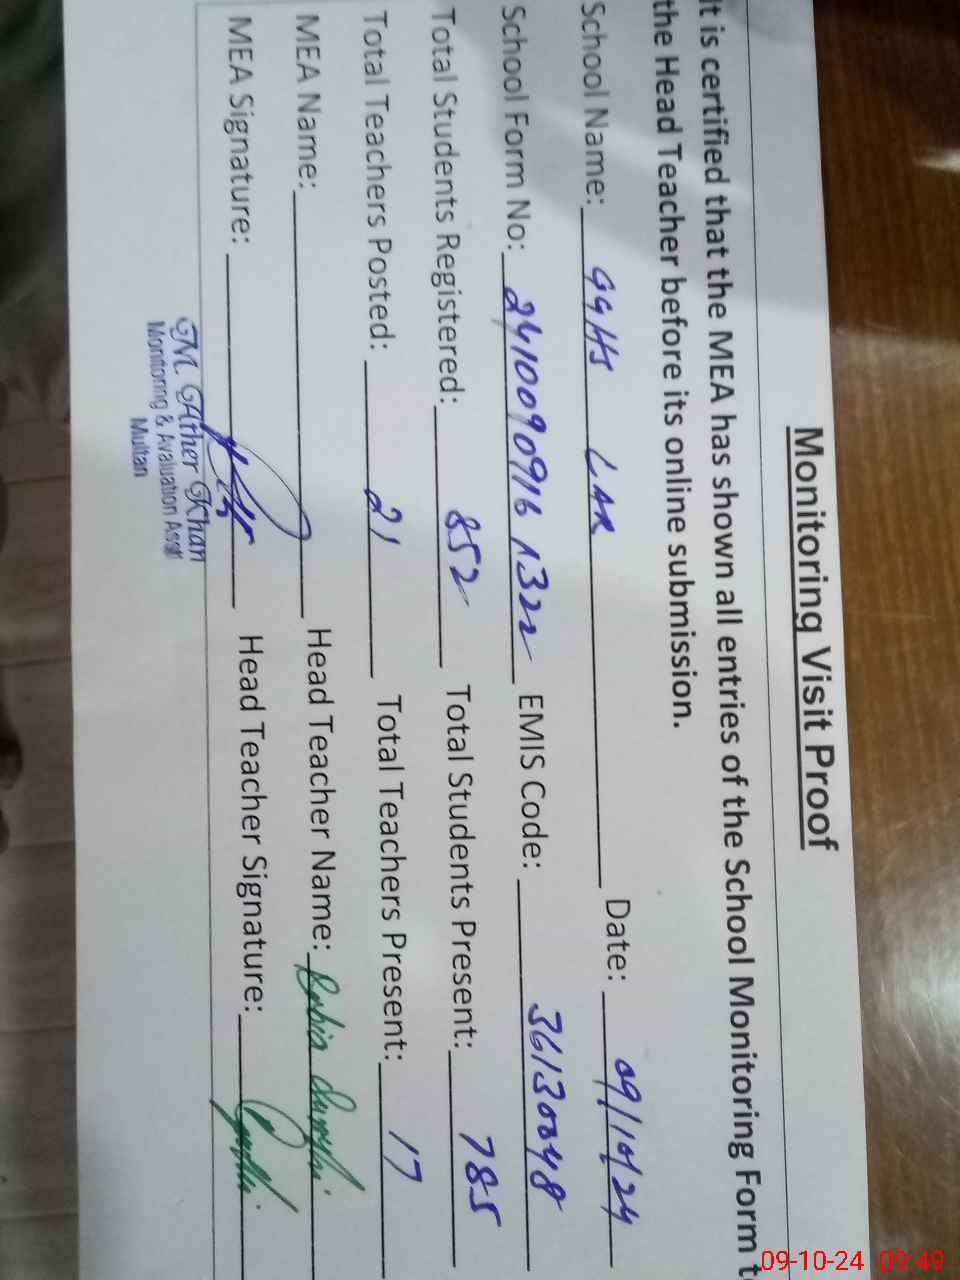 Monitoring Visit Proof
It is certified that the MEA has shown all entries of the School Monitoring Form t
the Head Teacher before its online submission.
School Name: GGHS LAR Date: 09/10/24
School Form No: 2410090916 1322 EMIS Code: 36130048
Total Students Registered: 852 Total Students Present: 785
Total Teachers Posted: 21 Total Teachers Present: 17
MEA Name: Head Teacher Name: Rubia
MEA Signature: Head Teacher Signature:
M. Ather Khan
Monitoring & Avaluation Asstt
Multan
09-10-24 09:49